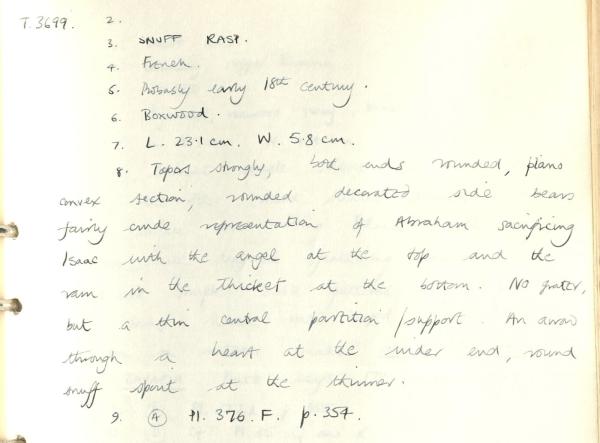 T. 3699. 2.
3. SNUFF RASP.
4. French.
5. Probably early 18th century.
6. Boxwood.
7. L. 23.1 cm. W. 5.8 cm.
8. Tapers strongly, both ends rounded, plano
convex section, rounded decorated side bears
fairly crude representation of Abraham sacrificing
Isaac with the angel at the top and the
ram in the thicket at the bottom. No grater,
but a thin central partition/support. An arrow
through a heart at the wider end, round
snuff spout at the thinner.
9. A Pl. 376. F. p. 354.